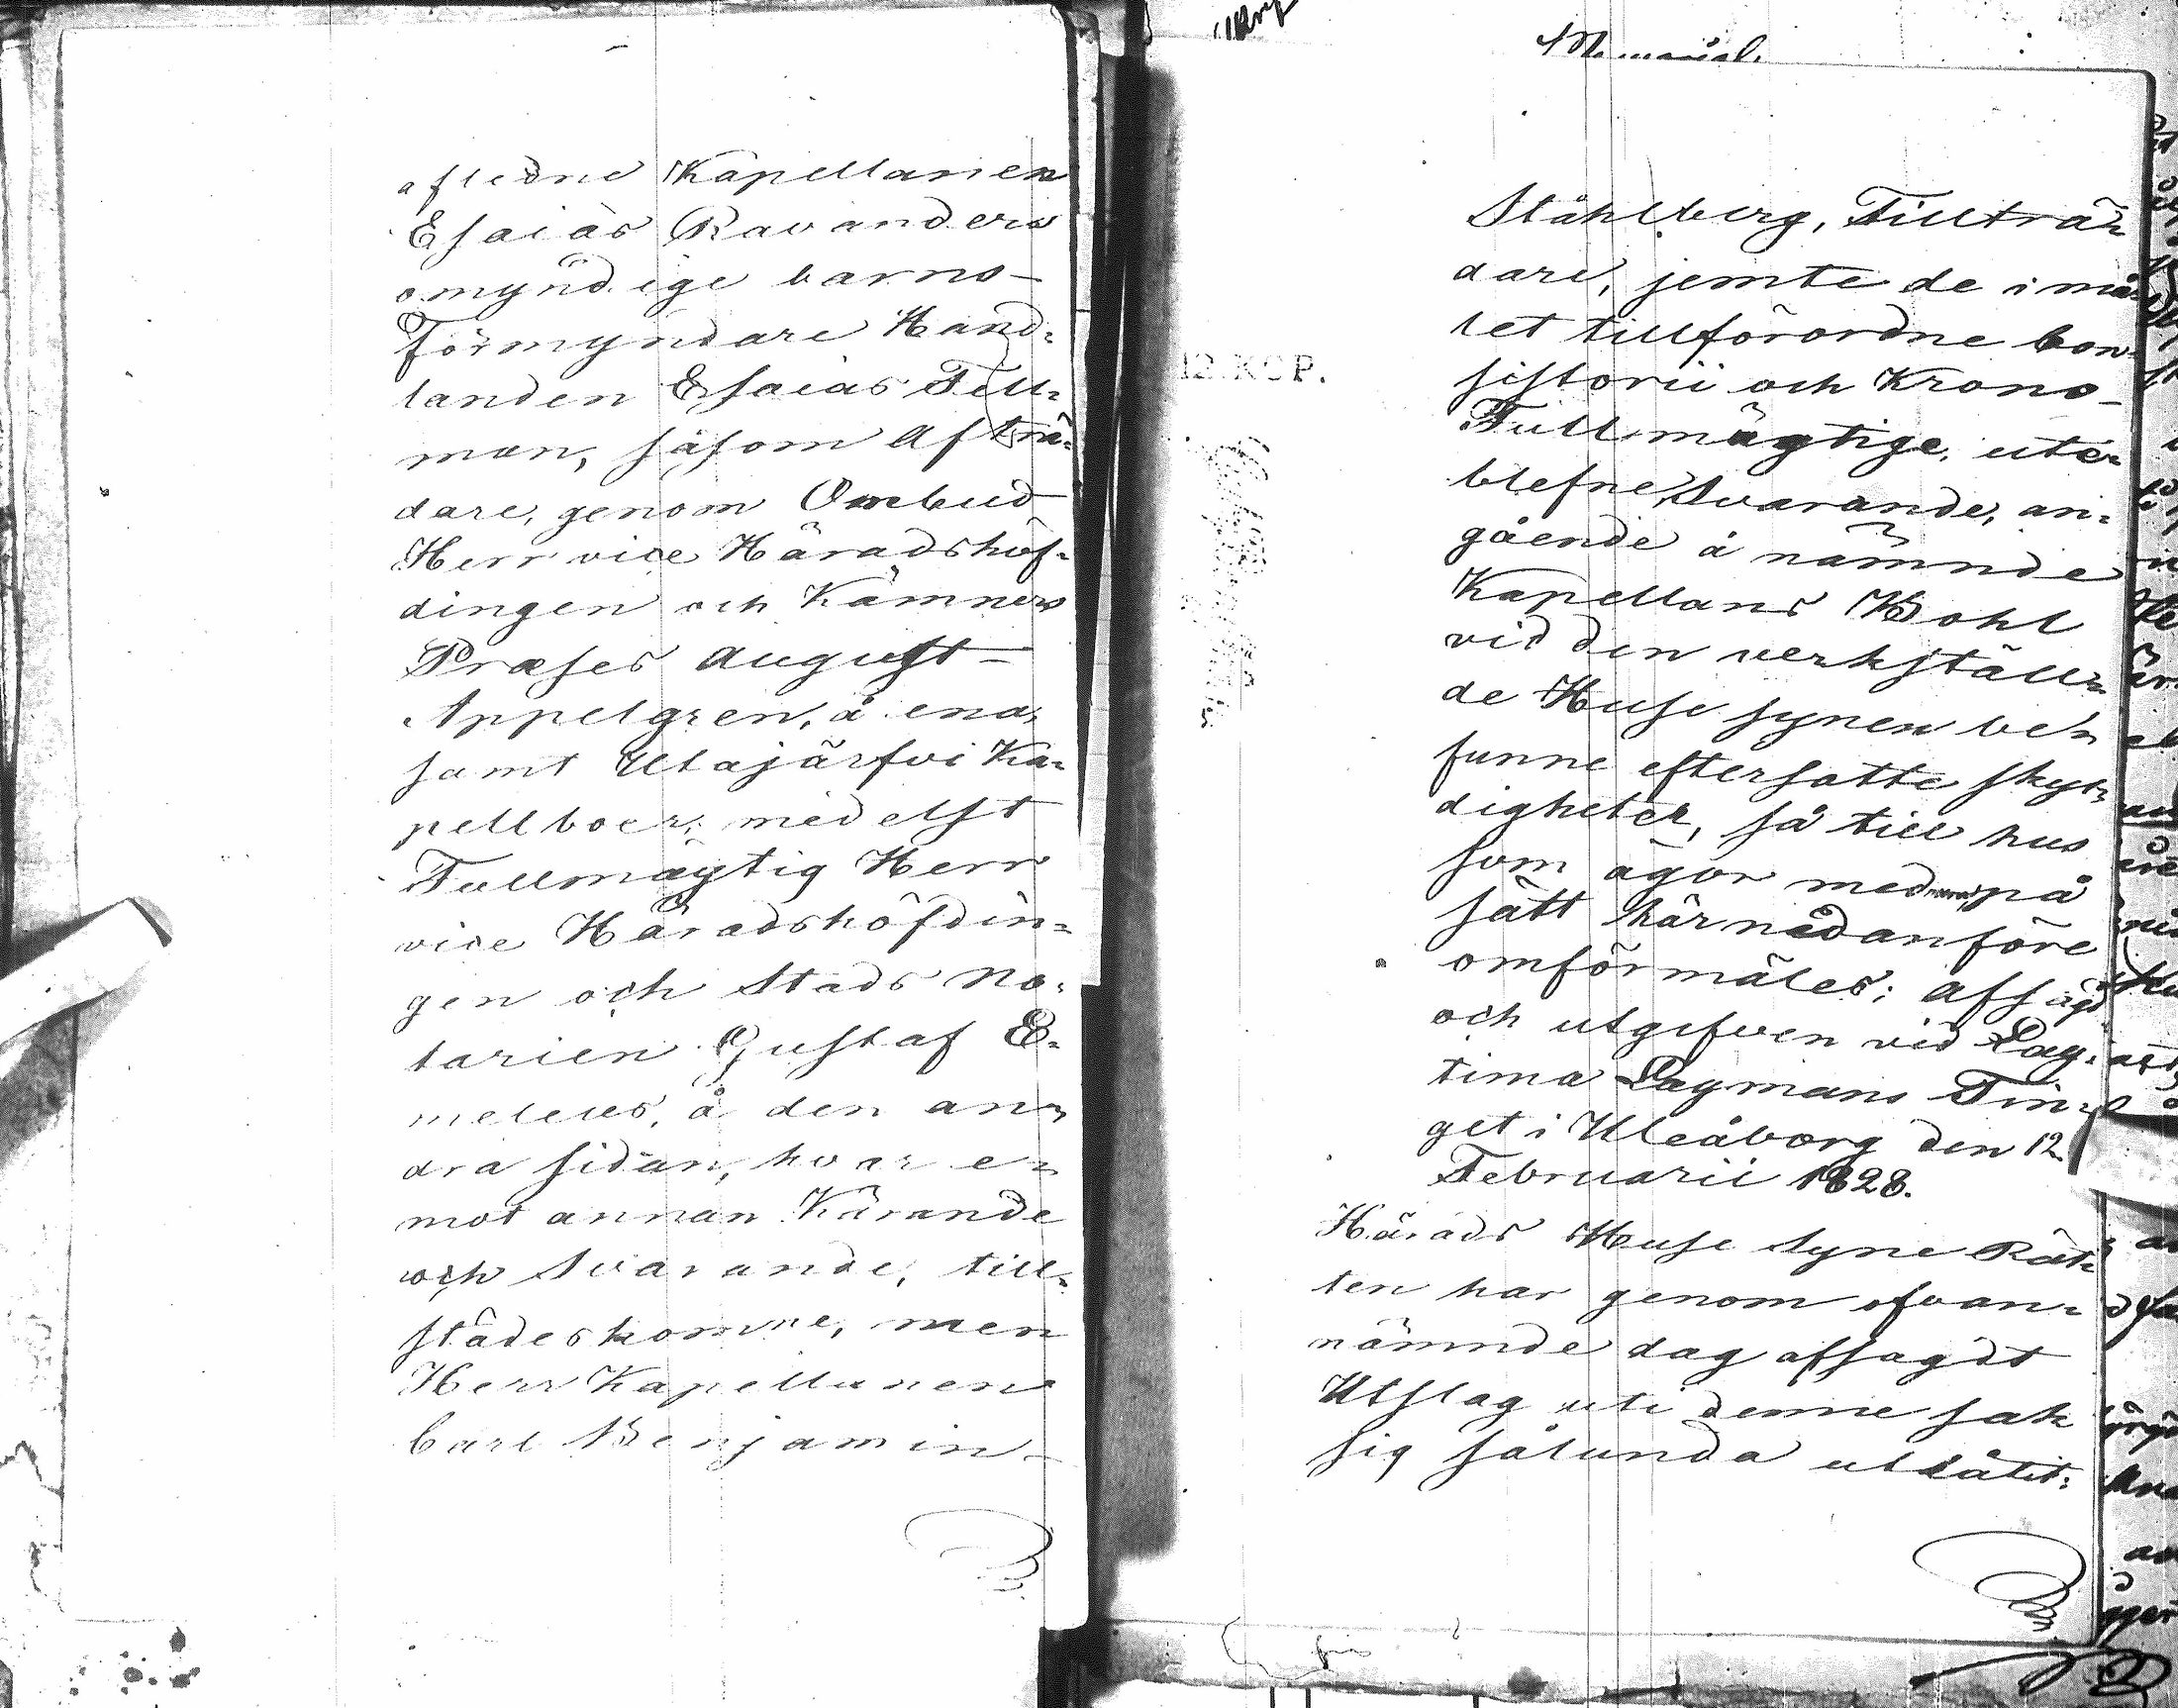 afledne Kapellanen
Esaias Ravanders
omyndige barns
Förmyndare Hand-
landen Esaias Fell-
man, såsom Afträ-
dare, genom Ombud
Herr vice Häradshöf-
dingen och Kämners
Præses August
Appelgren, å ena,
samt Utajärfvi Ka-
pellboer, medelst
Fullmägtig Herr
vice Häradshöfdin-
gen och Stads No-
tarien Gustaf E-
meleus, å den an-
dra sidan, hvar e-
mot annan Kärande
och Svarande, till-
städeskomne, men
Herr Kapellanen
Carl Benjamin
Memorial.
Ståhlberg, Tillträ-
dare, jemte de i må-
let tillförordne Con-
sistorii och Krono-
Fullmägtige, ute-
blefne, Svarande, an-
gående å nämnde
Kapellans Bohl
vid den verkställ-
de Huse synen be-
funne eftersatte skyl-
digheter, så till hus
som ägor med på
sätt härnedanföre
omförmäles; Afsagd
och utgifven vid Lag-
tima Lagmans Tin-
get i Uleåborg den 12
Februarii 1828.
Härads Huse Syne Rät-
ten har genom ofvan-
nämnde dag afsagdt
Utslag uti denne sak
sig sålunda utlåtit:
12. KOP.